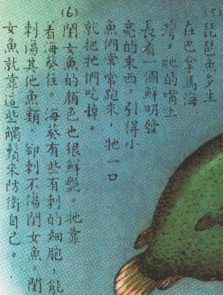 (5)琵琶魚多生
在巴拿馬海
灣。牠的嘴上
長着一個鮮明發
亮的東西,引得小
魚們常常跑來,牠一口
就把牠們吃掉。
(6)閨女魚的顏色也很鮮艷。牠靠
着海葵住。海葵有些有刺的細胞,能
刺傷其他魚類,卻刺不傷閨女魚。閨
女魚就靠這些觸鬚來防衛自己。